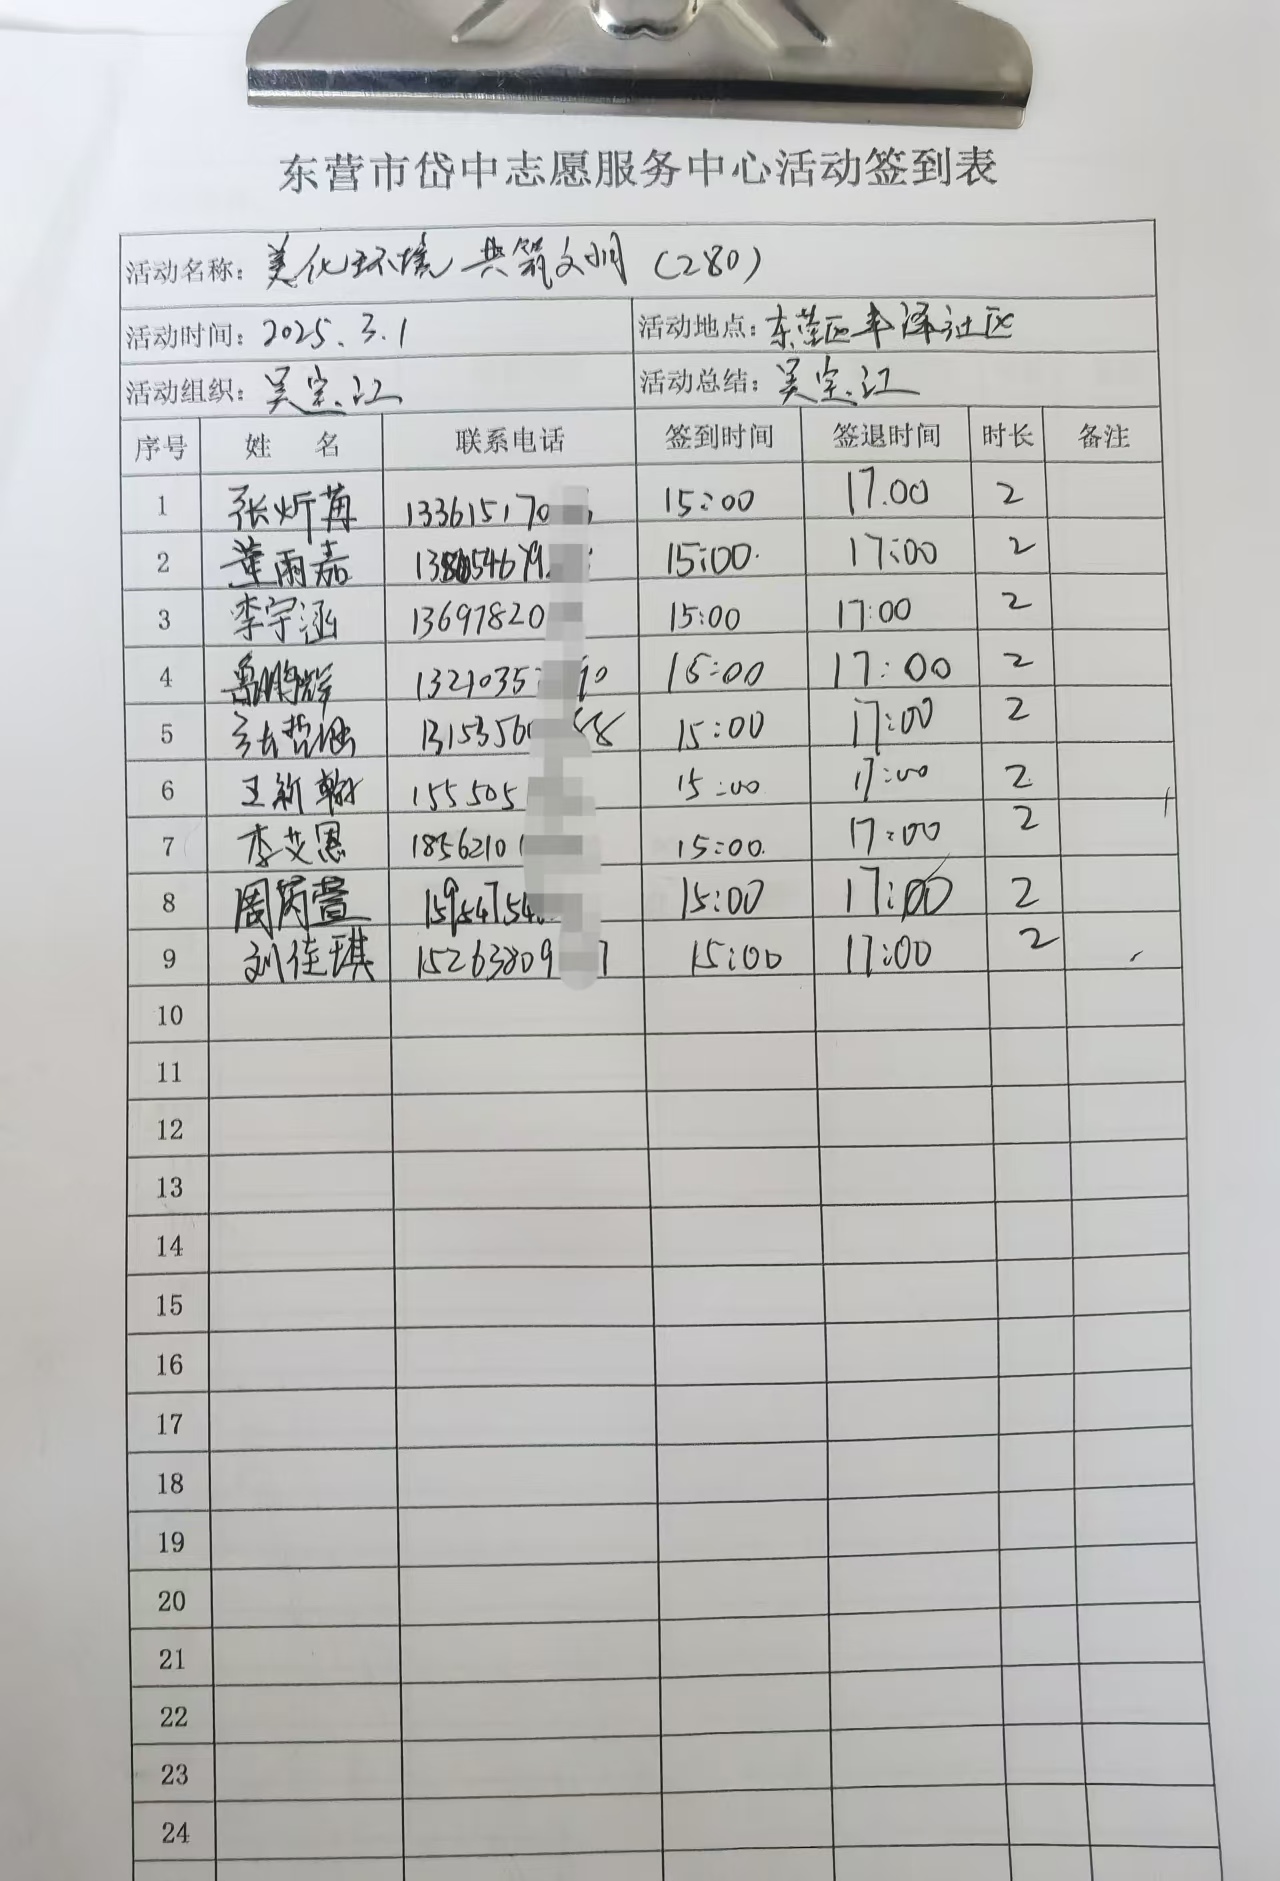 东营市岱中志愿服务中心活动签到表
活动名称：美化环境 共筑文明（280）
活动时间：2025.3.1 活动地点：东营区丰泽社区
活动组织：吴宗江 活动总结：吴宗江
序号 姓 名 联系电话 签到时间 签退时间 时长 备注
1 张炘苒 133615170 15:00 17.00 2
2 董雨嘉 15:00 17:00 2
3 李宇涵 13697820 15:00 17:00 2
4 1321035 90 15:00 17:00 2
5 1315356 58 15:00 17:00 2
6 王新翰 155505 15:00 17:00 2
7 李艾恩 18562101 15:00 17:00 2
8 周芮萱 15954754 15:00 17:00 2
9 刘佳琪 15263809 7 15:00 17:00 2
10
11
12
13
14
15
16
17
18
19
20
21
22
23
24